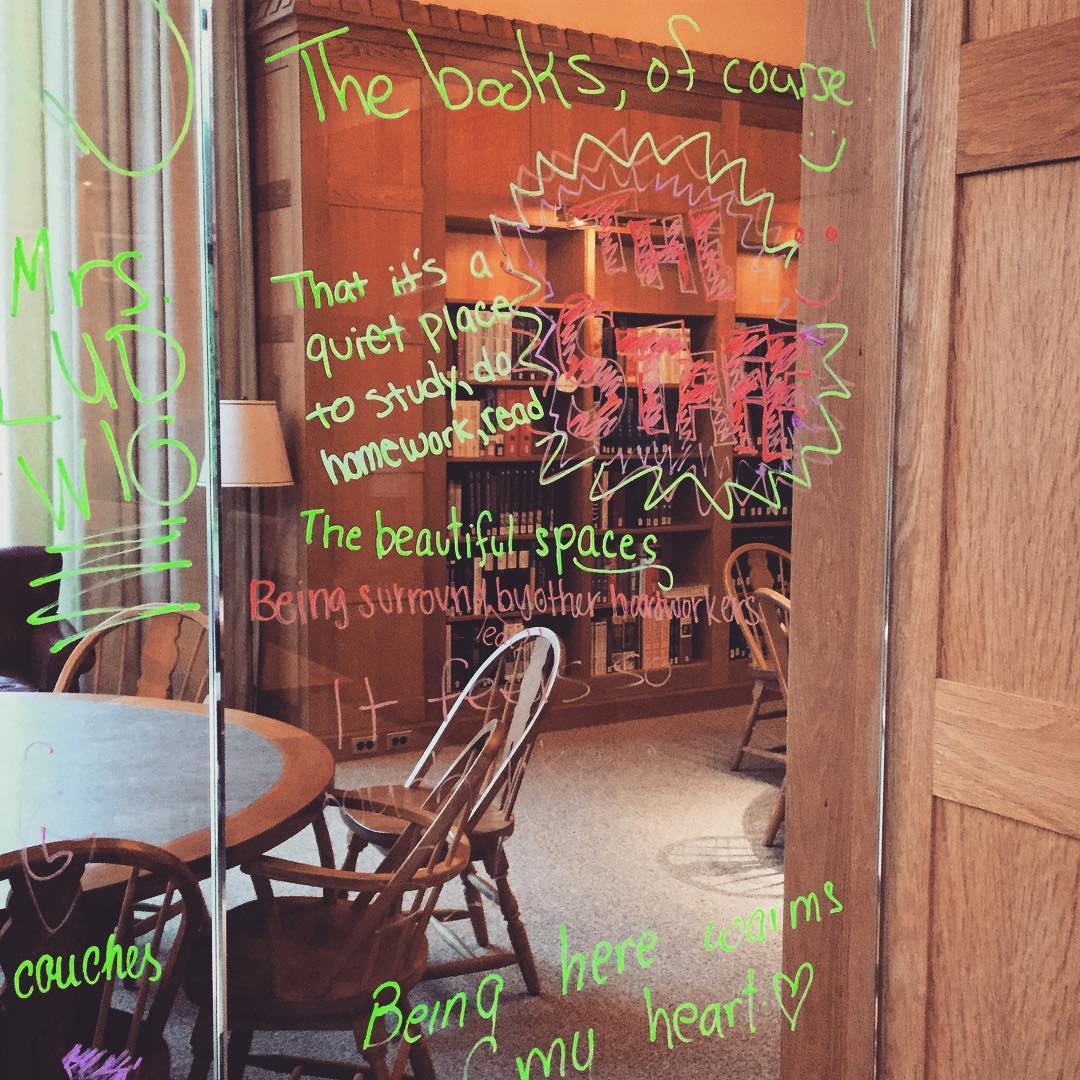 The books, of course!
Mrs.
LUD
WIG
That it's a
quiet place
to study, do
homework, read
THE
STAFF
The beautiful spaces
Being surround by other hardworkers
It feels so
couches
Being here warms
my heart